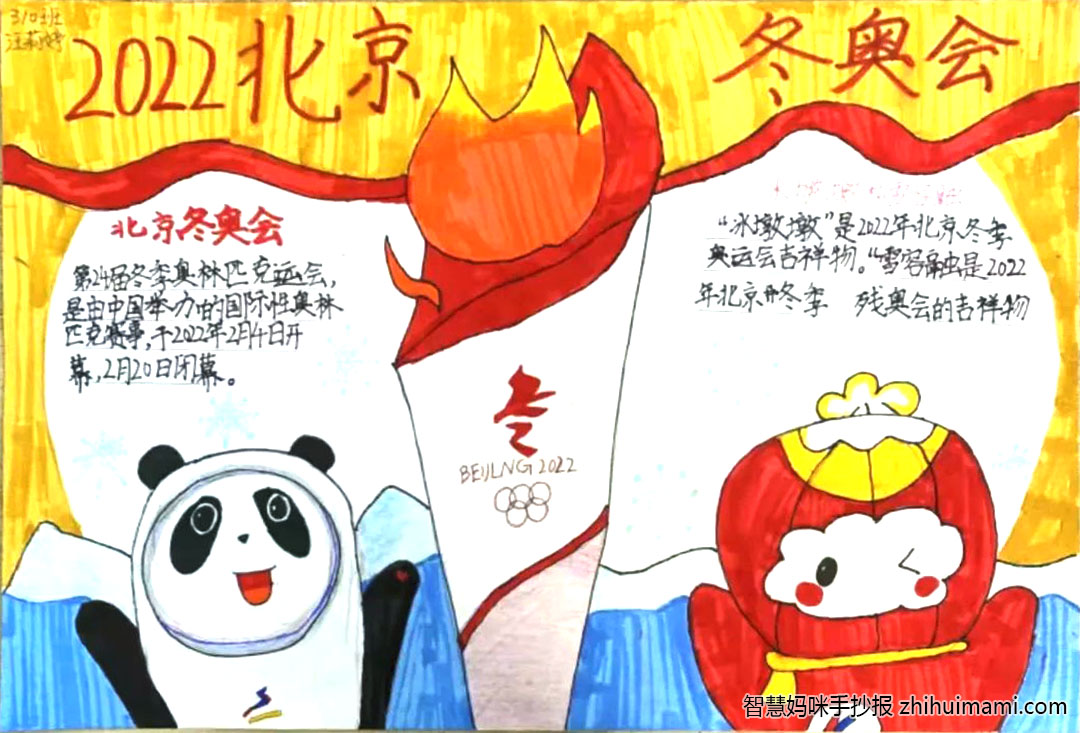 310班
2022北京 冬奥会
北京冬奥会
第24届冬季奥林匹克运会,
是由中国举办的国际性奥林
匹克赛事,于2022年2月4日开
幕,2月20日闭幕。
“冰墩墩”是2022年北京冬季
奥运会吉祥物。“雪容融是2022
年北京冬季 残奥会的吉祥物
BEIJLNG 2022
智慧妈咪手抄报 zhihuimami.com